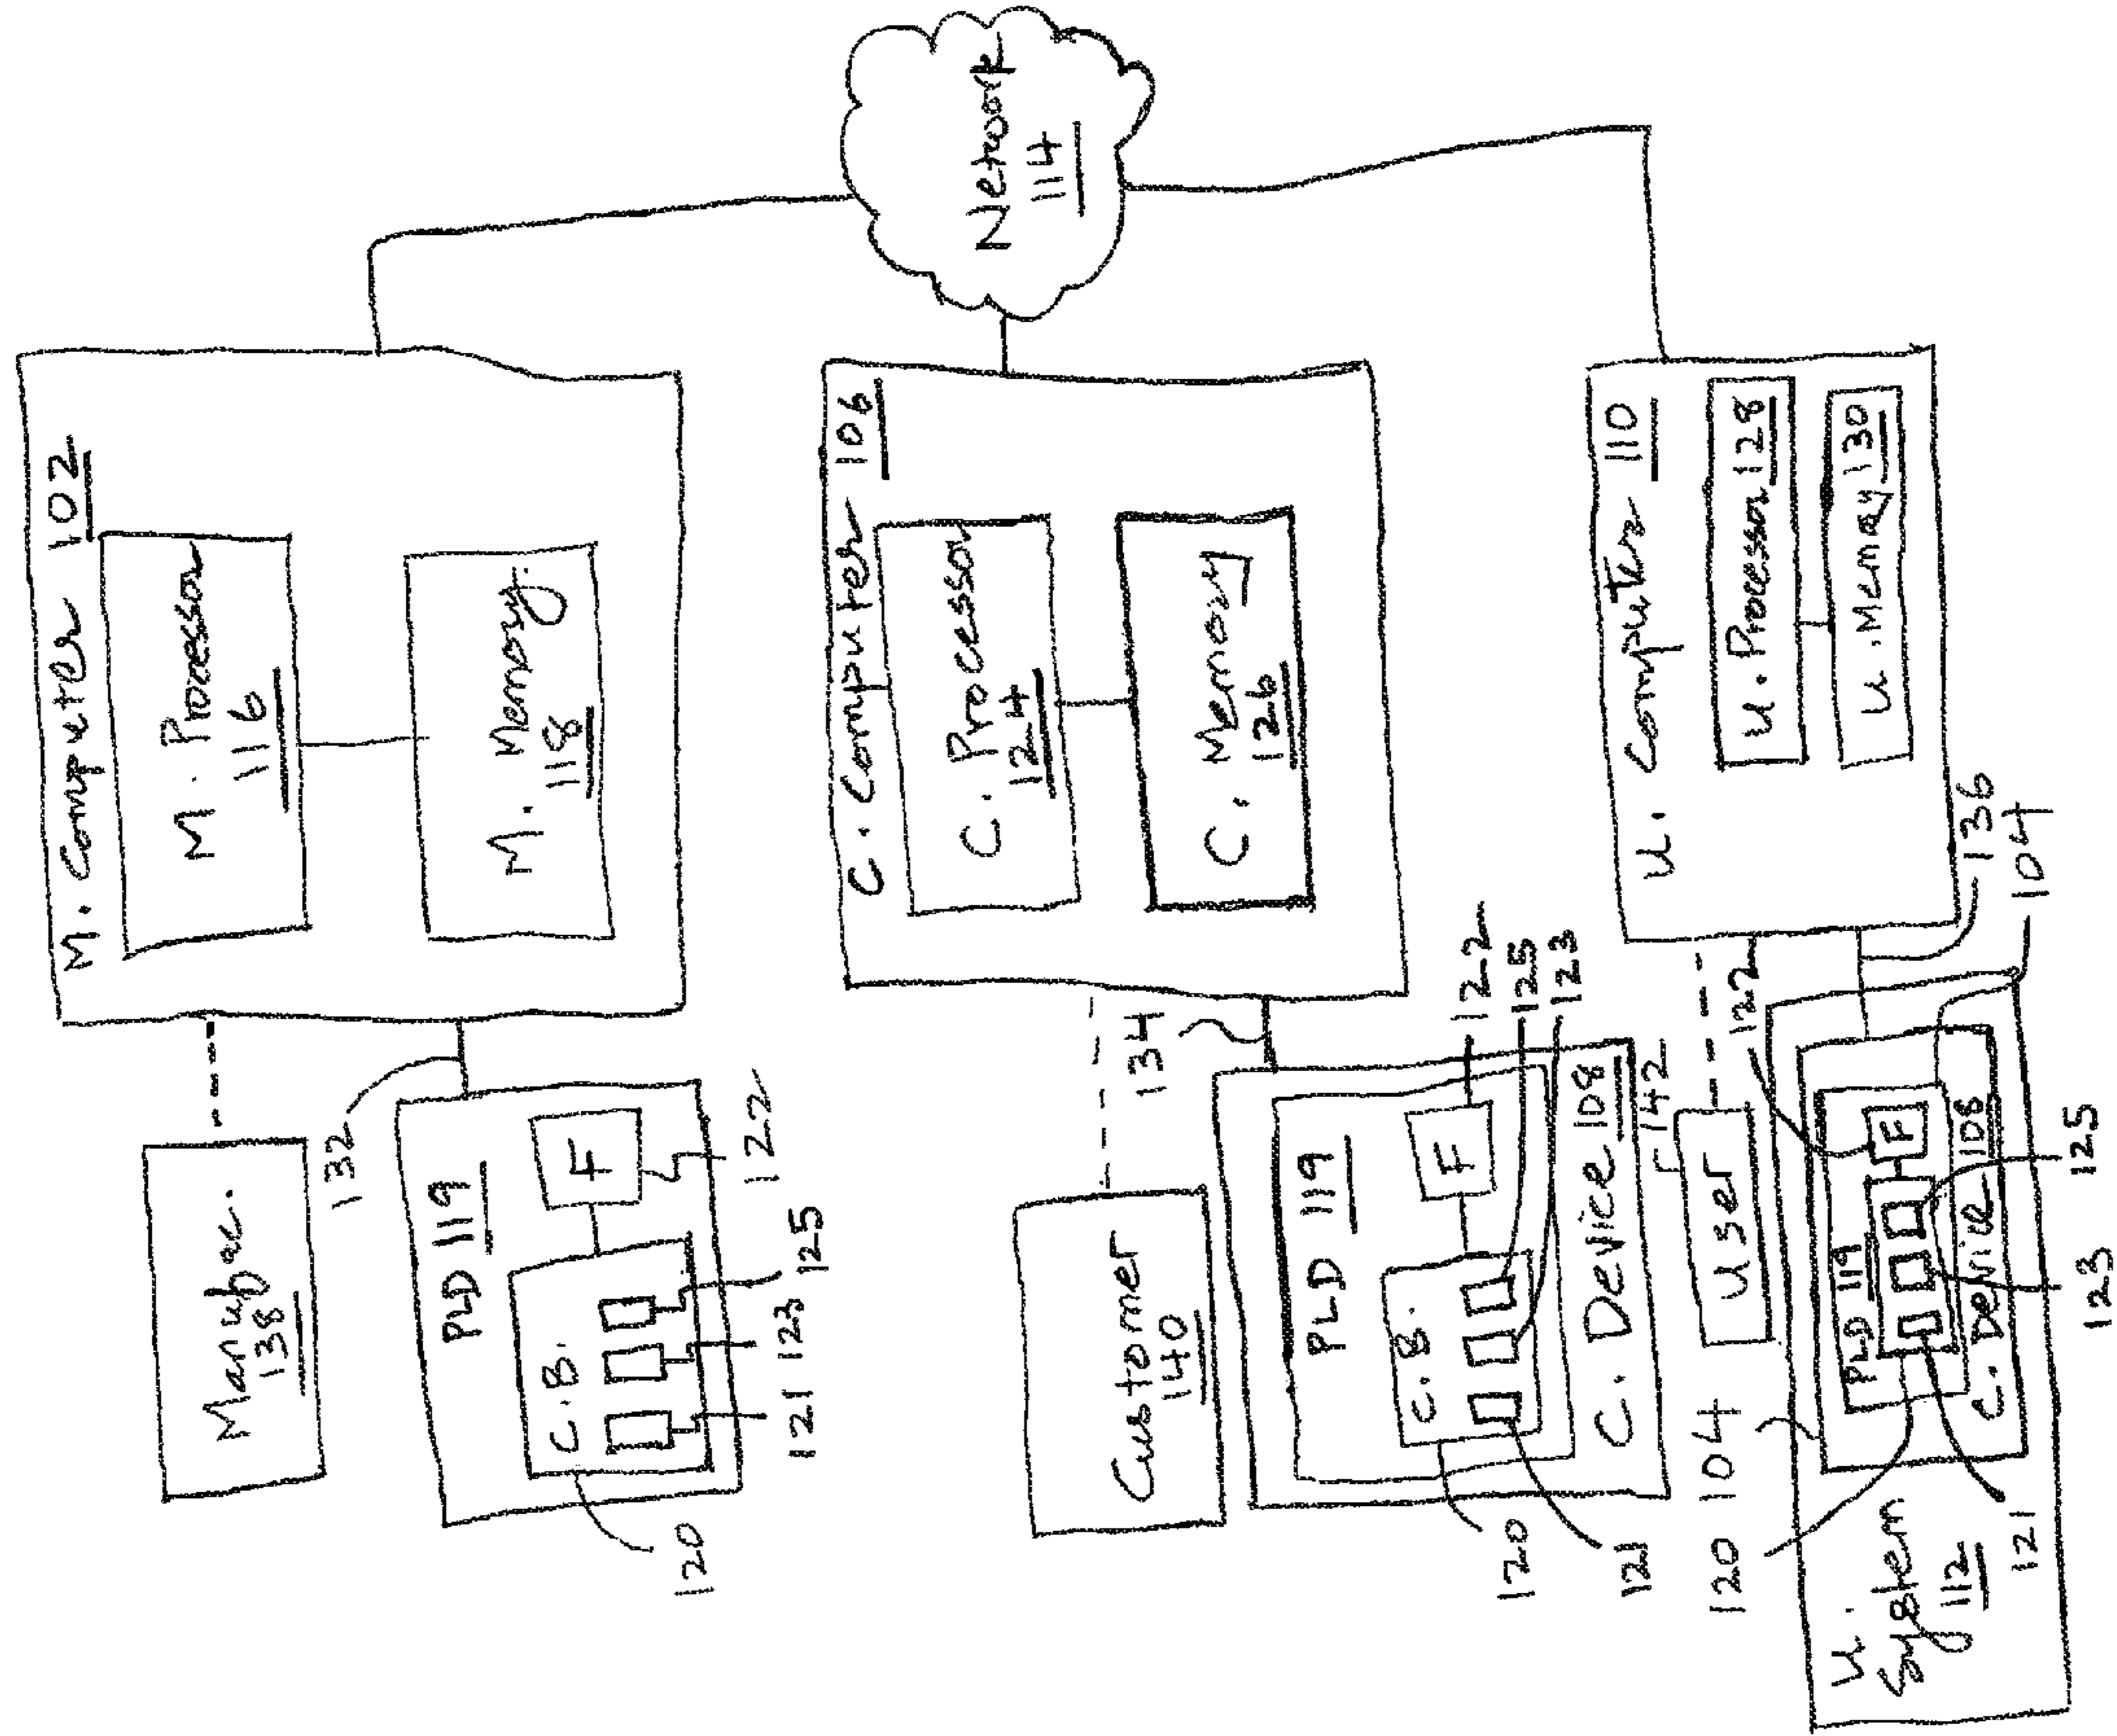 M. Computer 102
M. Processor
116
M. Memory
118
Manufac.
138
132
PLD 119
F
122
C.B.
125
123
121
120
Network
114
C. Computer 106
C. Processor
124
C. Memory
126
Customer
140
134
PLD 119
F
122
125
123
C.B.
C. Device 108
120
121
U. Computer 110
U. Processor 128
U. Memory 130
136
104
142
User
122
PLD 119
F
C. Device 108
125
123
121
120
104
U.
System
112